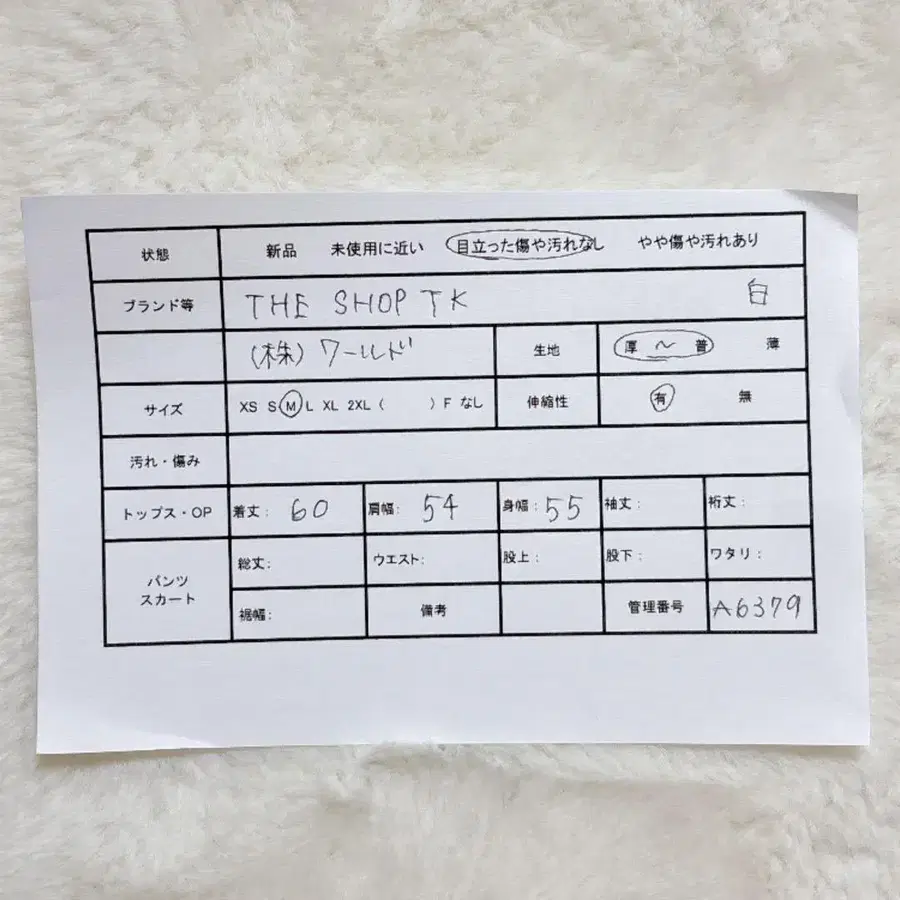 状態 新品 未使用に近い 目立った傷や汚れなし やや傷や汚れあり
ブランド等 THE SHOP TK 白
(株) ワールド 生地 厚 〜 普 薄
サイズ XS S M L XL 2XL ( ) F なし 伸縮性 有 無
汚れ・傷み
トップス・OP 着丈: 60 肩幅: 54 身幅: 55 袖丈: 裄丈:
パンツ スカート 総丈: ウエスト: 股上: 股下: ワタリ:
裾幅: 備考 管理番号 A6379